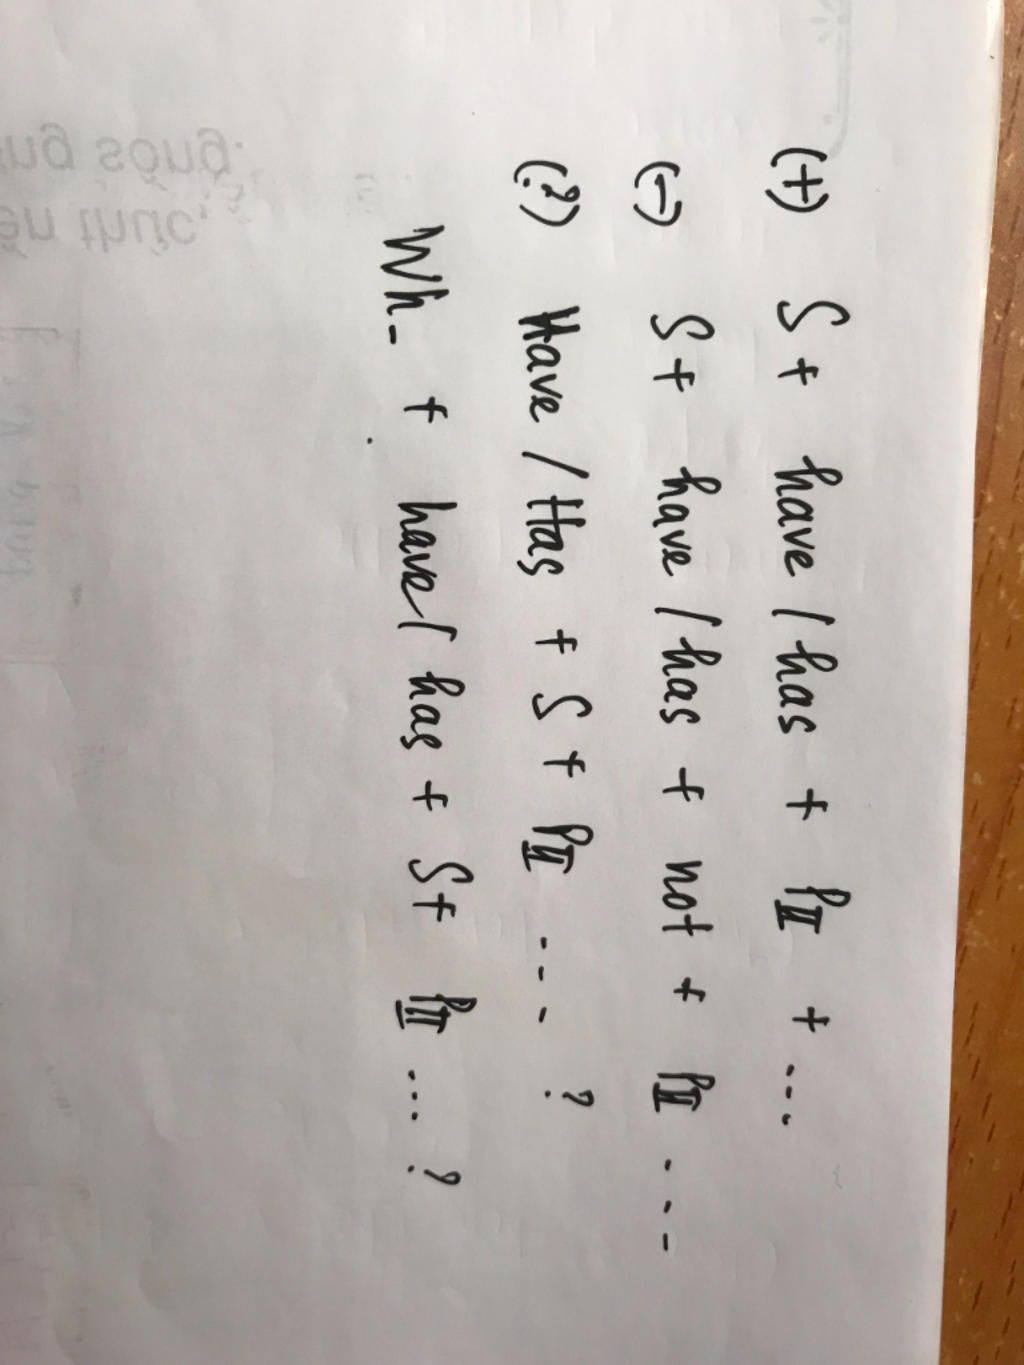 (+) S + have / has + PII + ...
(-) S + have / has + not + PII ...
(?) Have / Has + S + PII .... ?
Wh- + have / has + S + PII ... ?
ng sông.
ến thức,